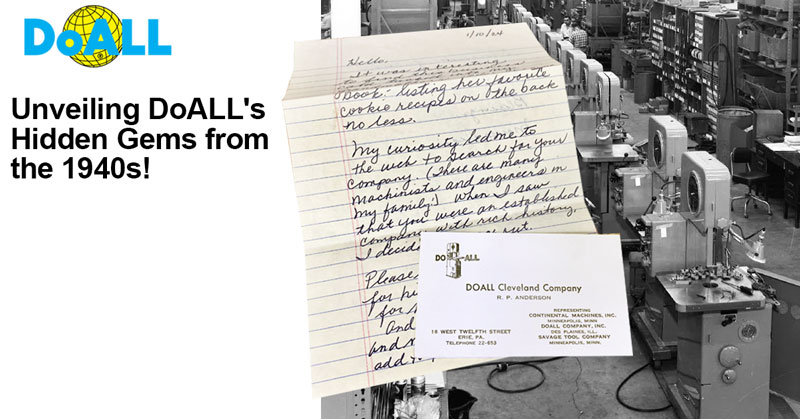 DoALL
Unveiling DoALL's
Hidden Gems from
the 1940s!
1/10/24
Hello,
It was interesting
book - listing her favorite
cookie recipes on the back
no less.
My curiosity led me to
the web to search for your
company. (There are many
machinists and engineers in
my family!) When I saw
that you were an established
company with rich history,
I decided
Please
for
for
And
and
add
DO ALL
DOALL Cleveland Company
R. P. ANDERSON
REPRESENTING
CONTINENTAL MACHINES, INC.
MINNEAPOLIS, MINN
DOALL COMPANY, INC.
DES PLAINES, ILL.
SAVAGE TOOL COMPANY
MINNEAPOLIS, MINN.
16 WEST TWELFTH STREET
ERIE, PA.
TELEPHONE 22-653